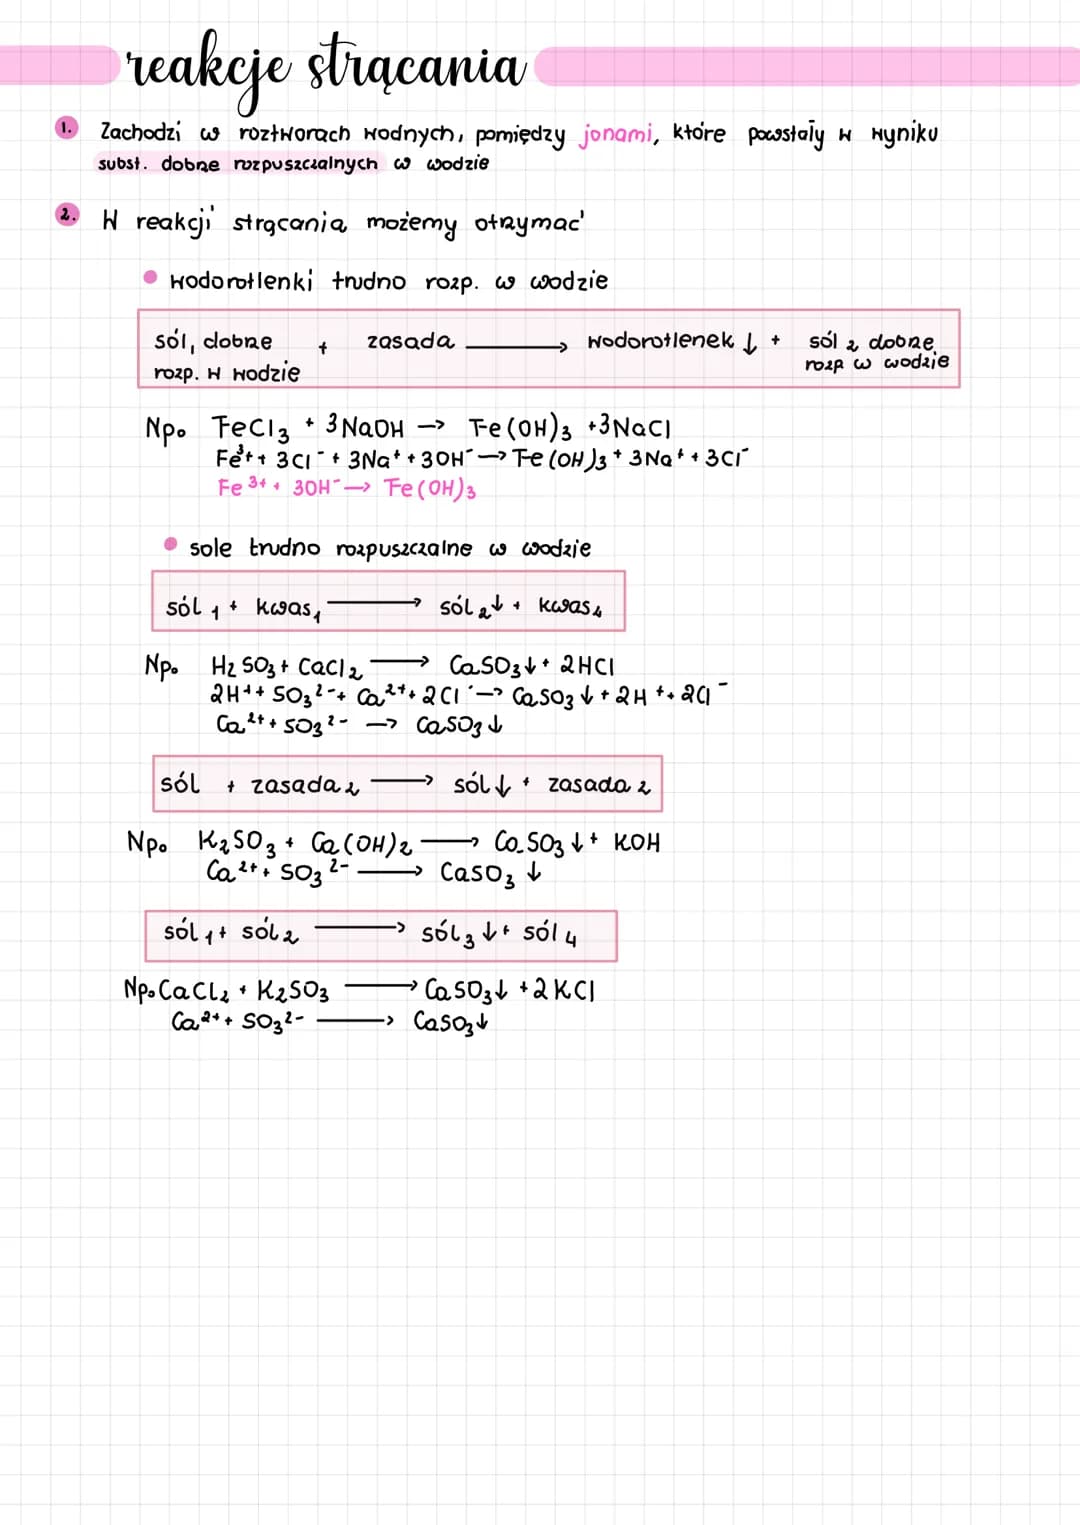 reakcje strącania
1. Zachodzi w roztworach wodnych, pomiędzy jonami, które powstały w wyniku
subst. dobrze rozpuszczalnych w wodzie
2. W reakcji strącania możemy otrzymać
• wodorotlenki trudno rozp. w wodzie
sól₁ dobrze rozp. w wodzie + zasada ⟶ wodorotlenek ↓ + sól₂ dobrze rozp w wodzie
Np. FeCl₃ + 3NaOH → Fe(OH)₃ +3NaCl
Fe³⁺+ 3Cl⁻+ 3Na⁺+3OH⁻→Fe(OH)₃+ 3Na⁺+3Cl⁻
Fe³⁺+ 3OH⁻→ Fe(OH)₃
• sole trudno rozpuszczalne w wodzie
sól₁ + kwas₁ ⟶ sól₂↓ + kwas₄
Np. H₂SO₃+ CaCl₂ ⟶ CaSO₃↓+ 2HCl
2H⁺+ SO₃²⁻+ Ca²⁺+2Cl⁻→ CaSO₃↓+2H⁺+2Cl⁻
Ca²⁺+SO₃²⁻ → CaSO₃↓
sól + zasada₂ ⟶ sól↓ + zasada₂
Np. K₂SO₃+ Ca(OH)₂ ⟶ CaSO₃↓+ KOH
Ca²⁺+ SO₃²⁻ ⟶ CaSO₃↓
sól₁+ sól₂ ⟶ sól₃↓+ sól₄
Np. CaCl₂ + K₂SO₃ ⟶ CaSO₃↓ +2KCl
Ca²⁺+ SO₃²⁻ ⟶ CaSO₃↓